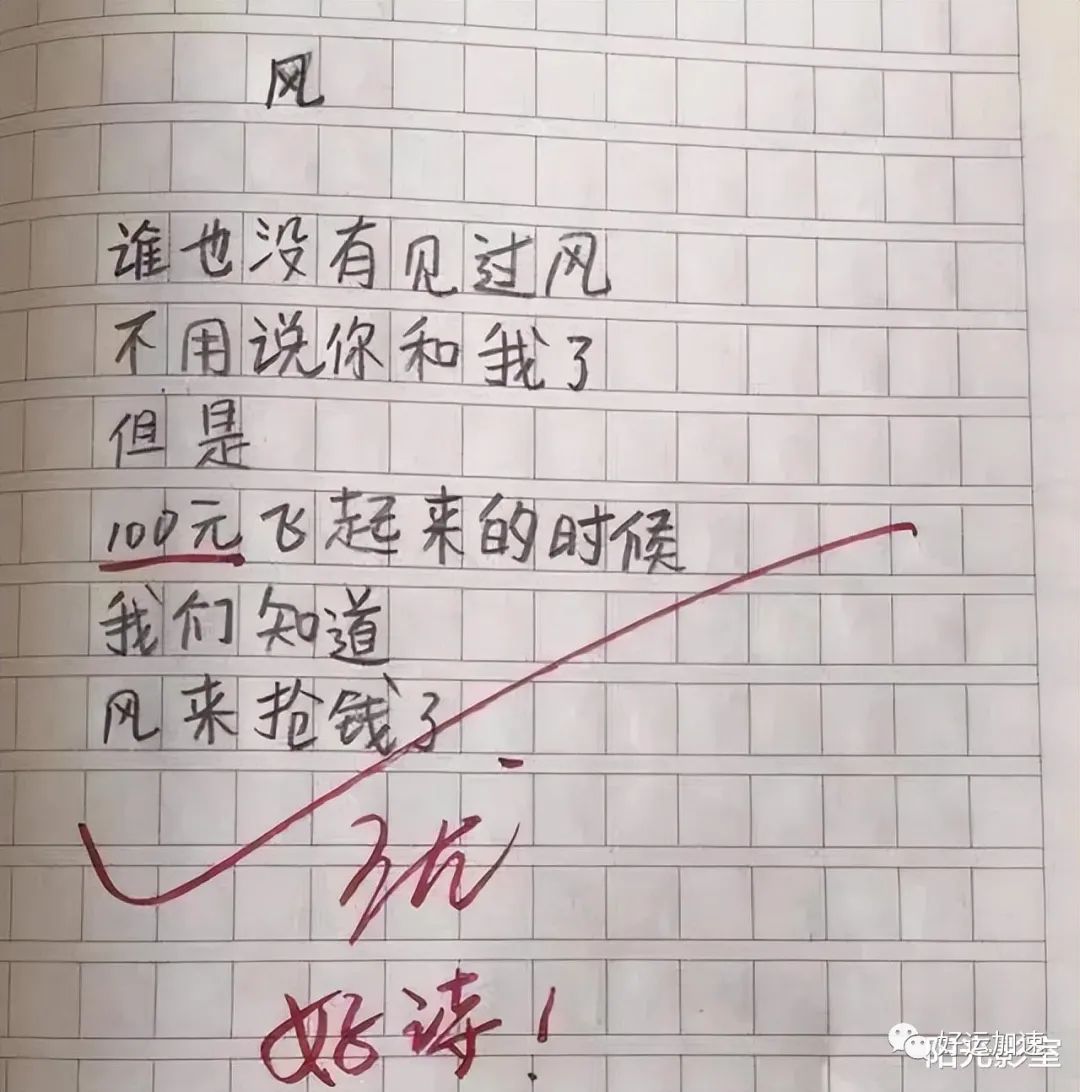 风
谁也没有见过风
不用说你和我了
但是
100元飞起来的时候
我们知道
风来抢钱了
优
好诗!
好运加速
阳光影室